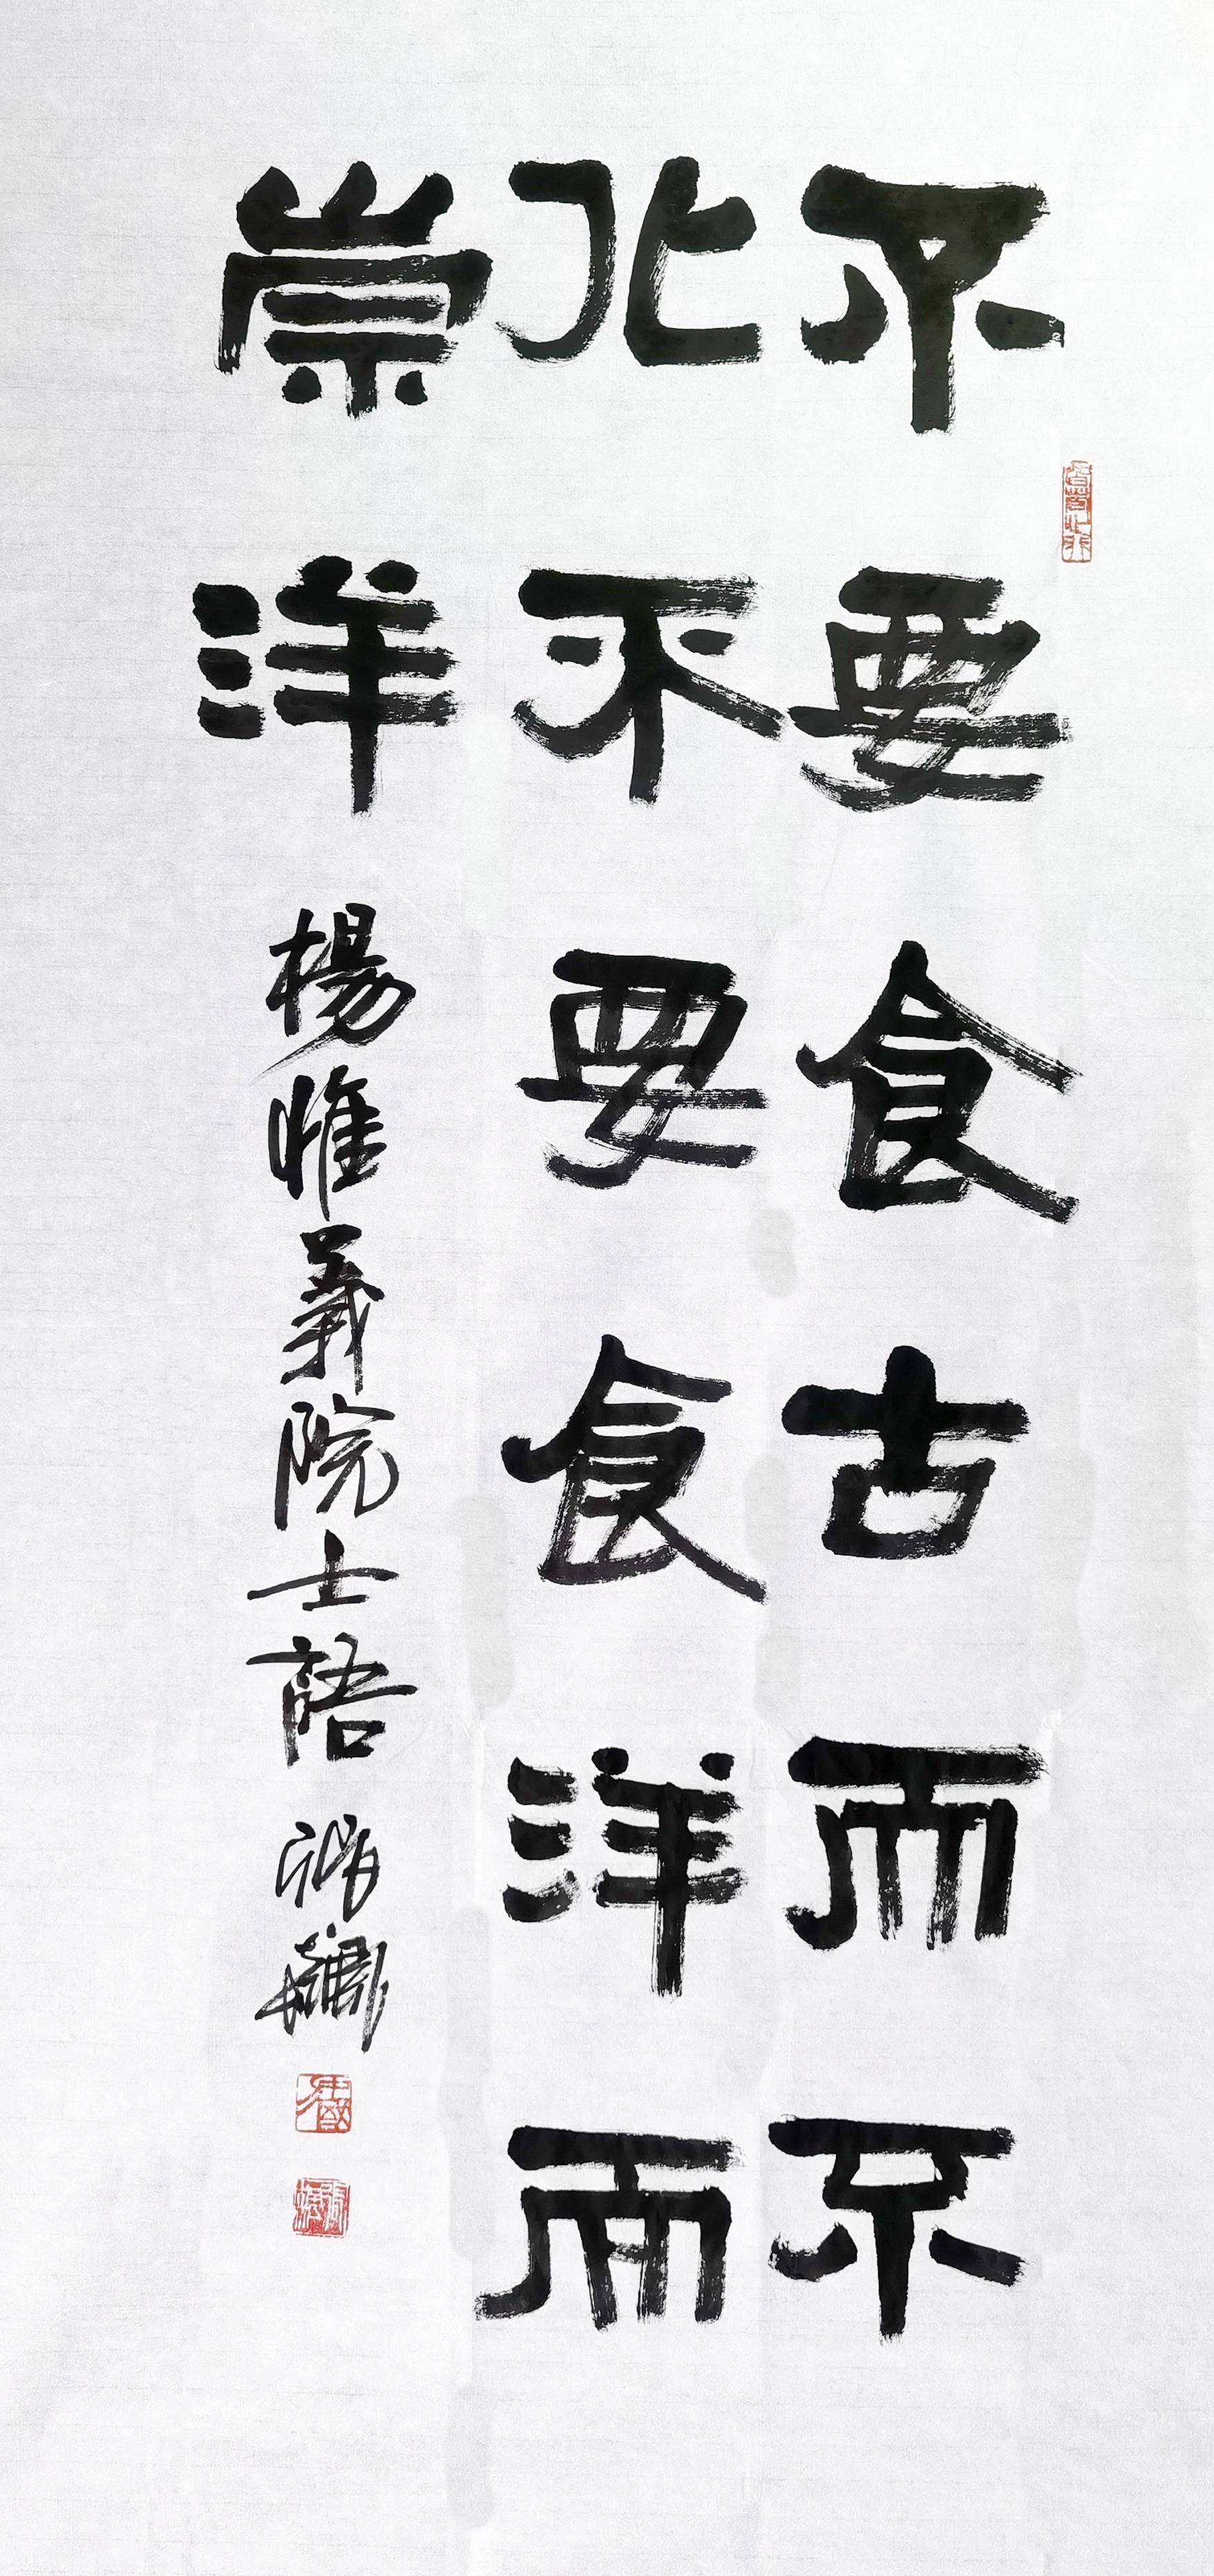 不要食古而不
化不要食洋而
崇洋
楊惟義院士語